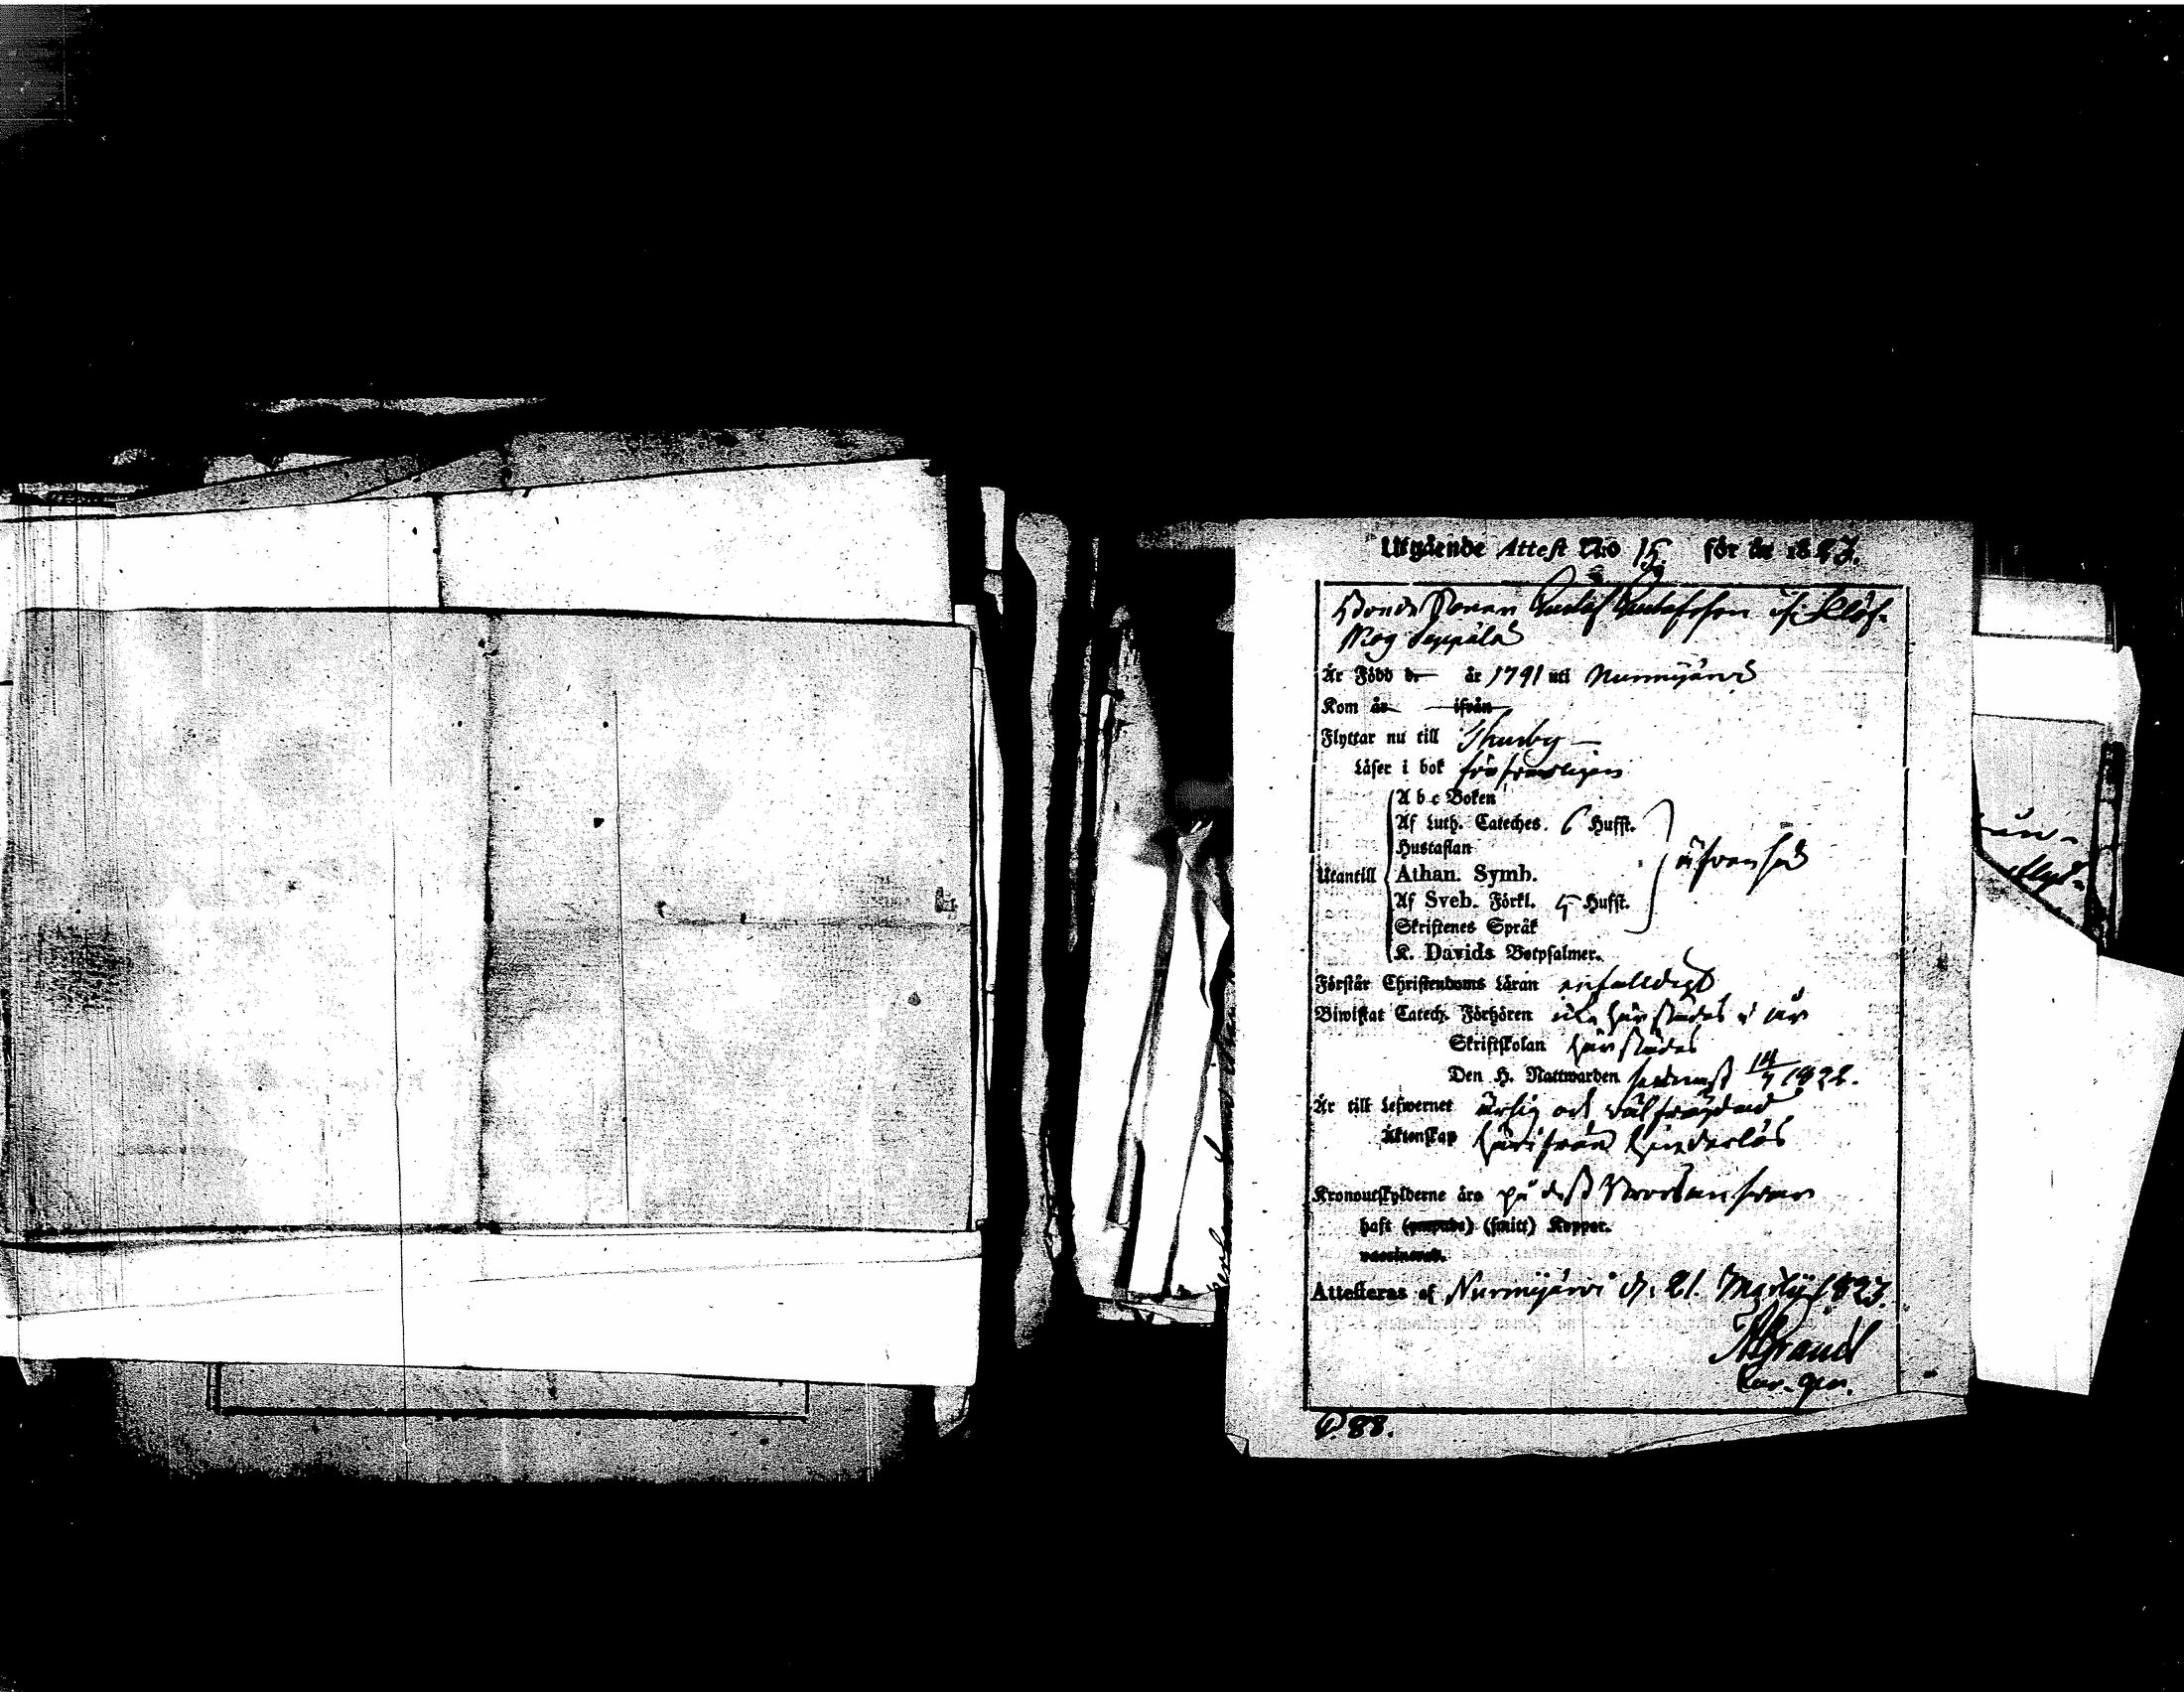 Utgående Attest N:o 15. för år 1823.
Bonde Sonen Gustaf Gustafsson ifr: Klöf-
skog Seppälä
Är Född d. år 1791 uti Nurmijärvi
Kom år ifrån
Flyttar nu till Thusby
Läser i bok försvarligen
A b c Boken
Af Luth. Cateches. 6 Hufst.
Hustaflan
Utantill Athan. Symb.
Af Sveb. Förkl. 5 Hufst.
Skriftenes Språk
K. Davids Botpsalmer.
Förstår Christendoms Läran enfaldigt
Biwistat Catech. Förhören härstädes i år
Skriftskolan härstädes
Den H. Nattwarden sednast 14/7 1822.
Är till Lefwernet ärlig och välfrägdad
Äktenskap härifrån hinderlös
Kronoutskylderne äro på dess
haft (smitt) Koppor.
vaccinerad.
Attesteras af Nurmijärvi d. 21. Martij 1823.
P. 88.